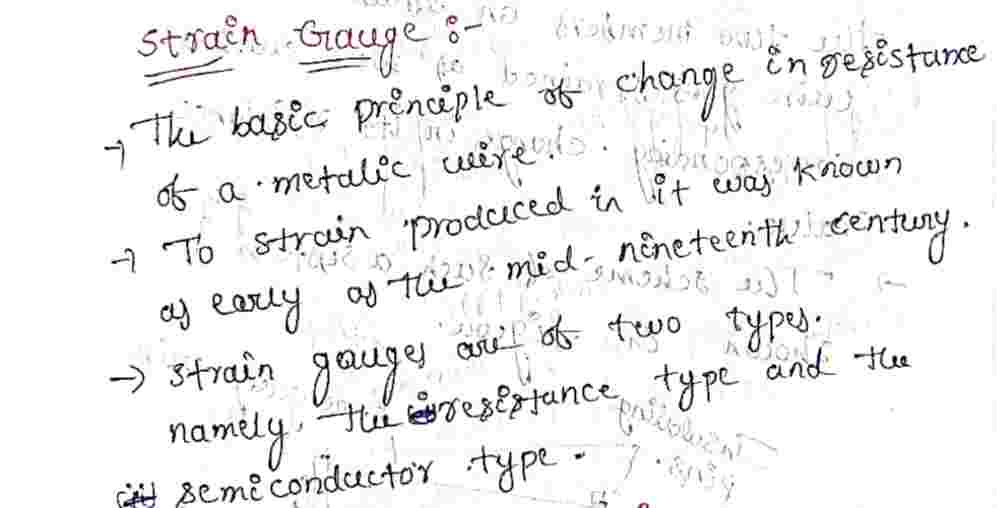 Strain Gauge :-
→ The basic principle of change in resistance
of a metalic wire.
→ To strain produced in it was known
as early as the mid-nineteenth century.
→ strain gauges are of two types.
namely, the resistance type and the
semiconductor type.
insulating